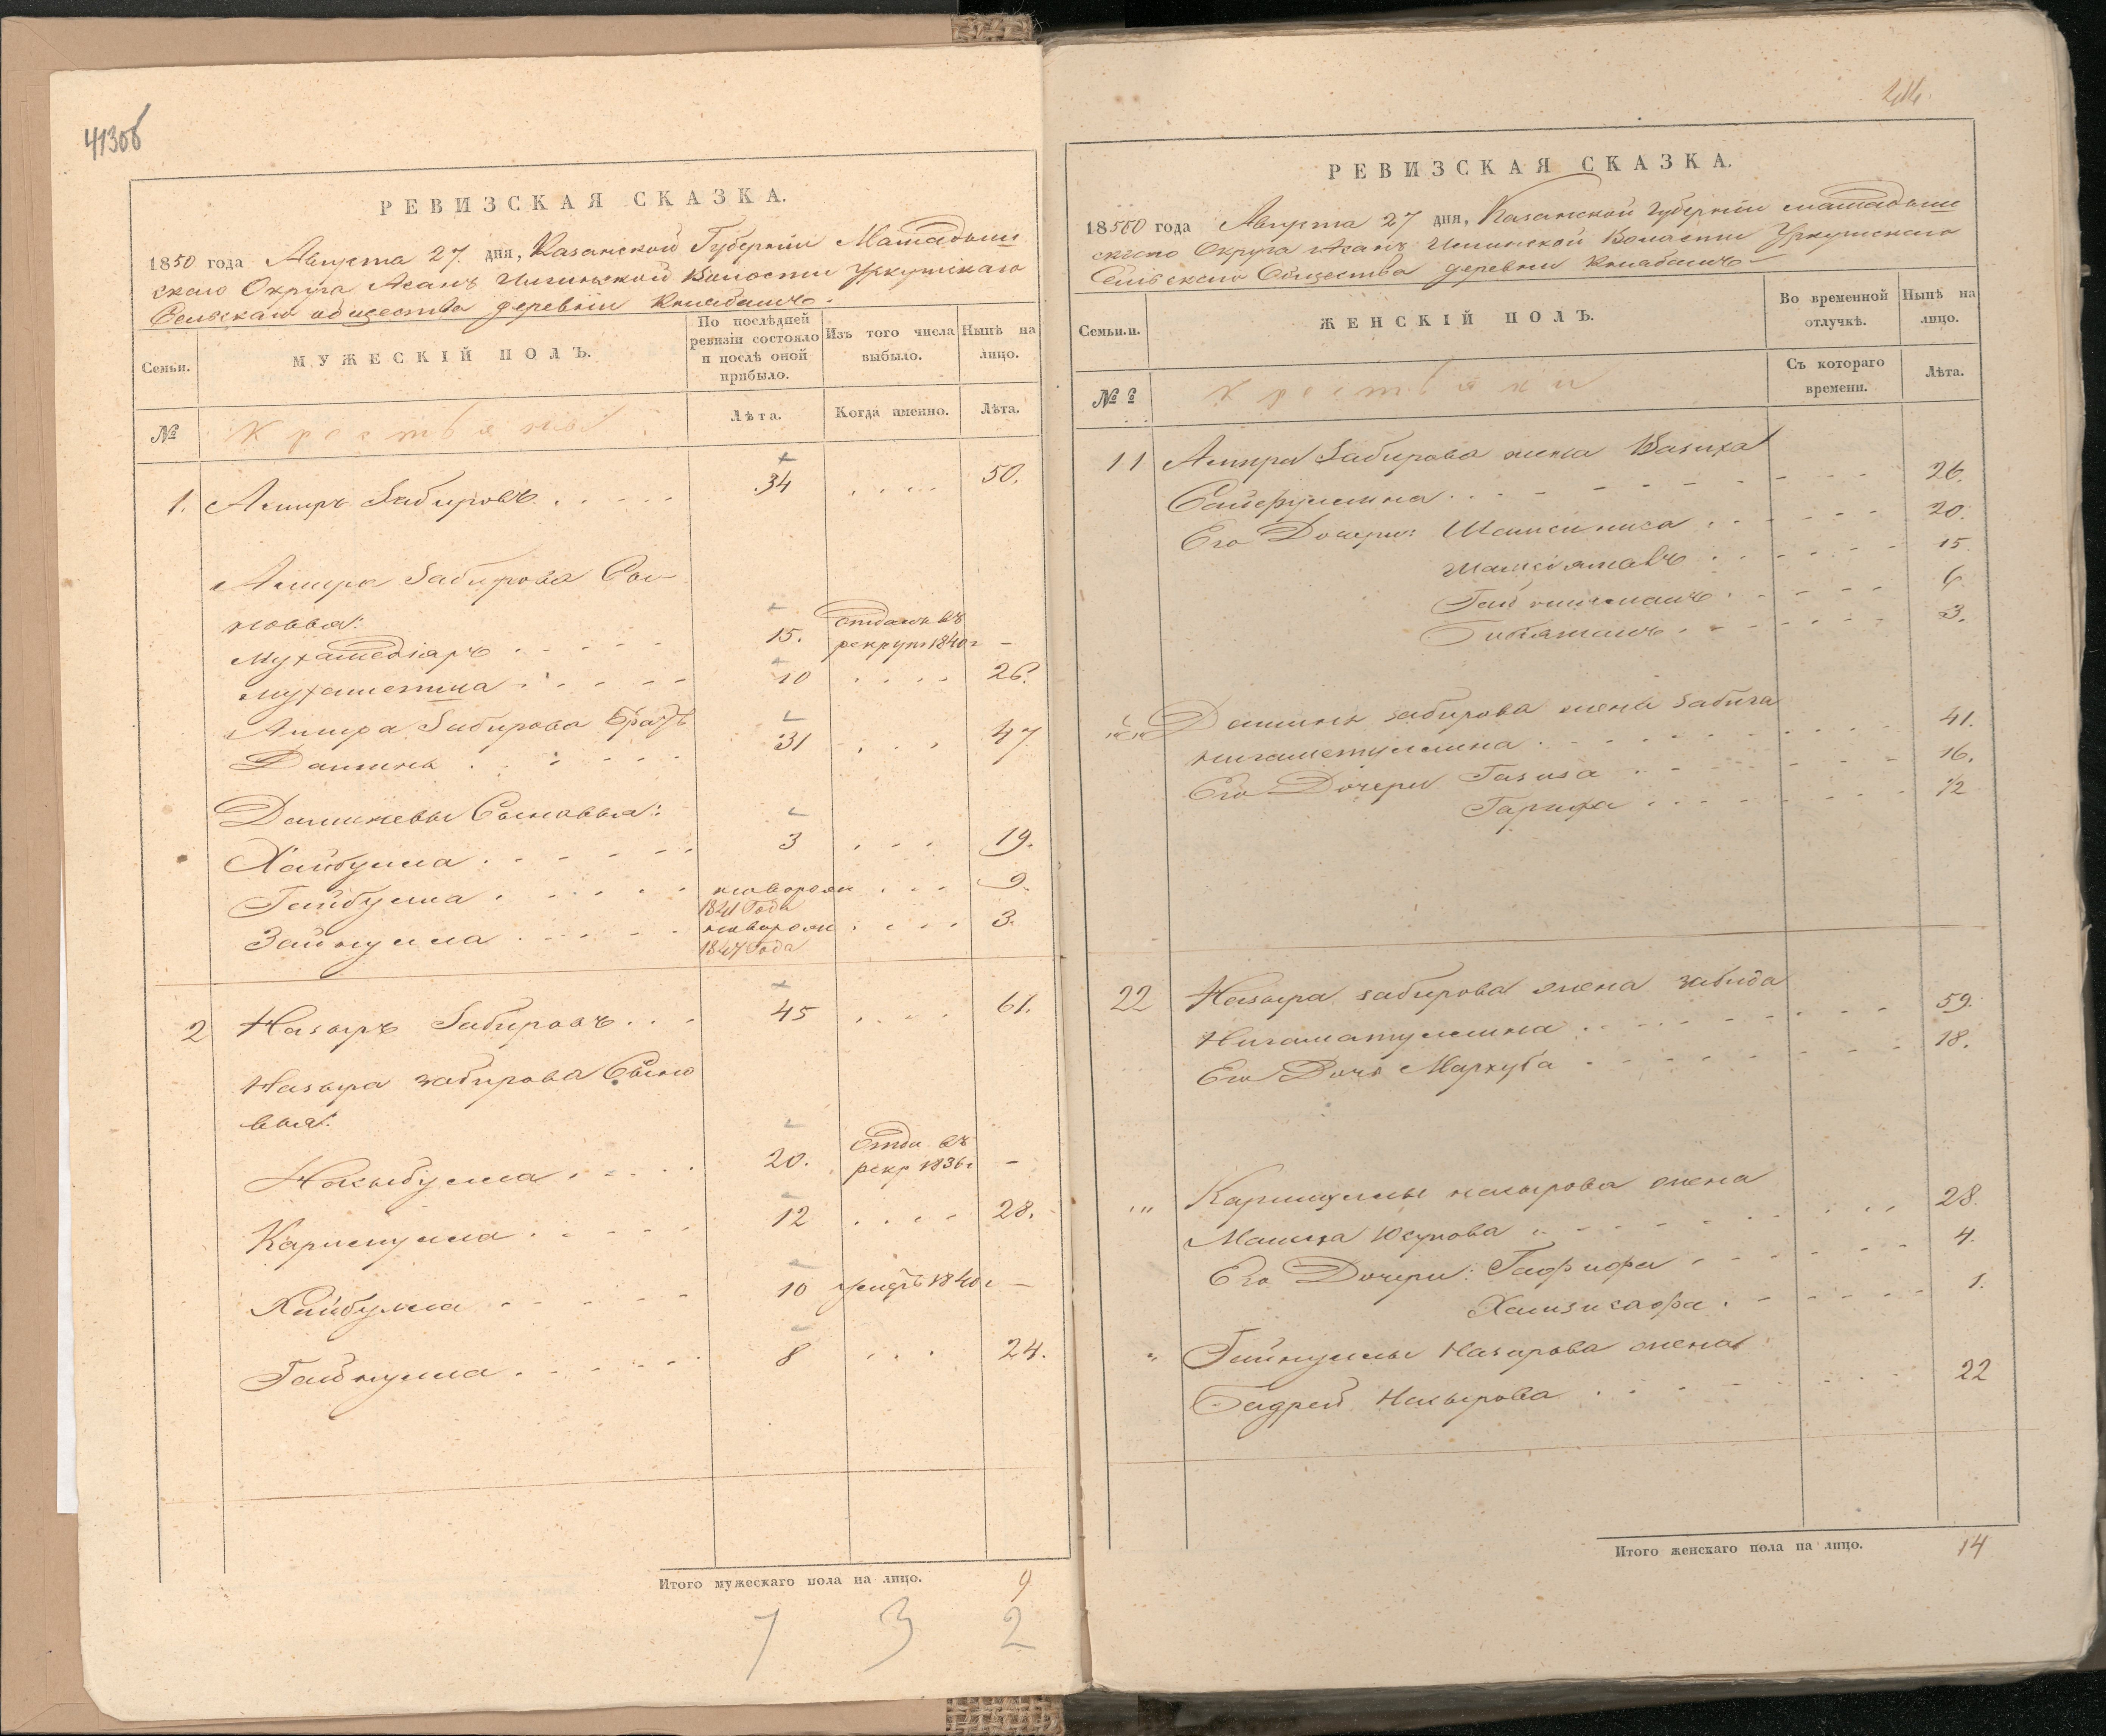 413об
РЕВИЗСКАЯ СКАЗКА.
1850 года Августа 27. дня, Казанской Губерніи Мамадыш
скаго Округа Асанъ Илгинской Волости Уркушскаго
Сельскаго общества деревни
Семьи.
МУЖЕСКІЙ ПОЛЪ.
По послѣдней ревизіи состояло и послѣ оной прибыло.
Изъ того числа выбыло.
Нынѣ на лицо.
№
Крестьяны
Лѣта.
Когда именно.
Лѣта.
1. Амиръ Забировъ 34 50.
Амира Забирова Сы-
новья:
Мухамедіаръ 15. отданъ въ рекруты 1840 г –
10 26.
Амира Забирова братъ
Даминъ 31 47
Даминевы Сыновья:
Хайбулла 3 19.
Гайбулла новорож 1841 Года 9.
Зайнулла новорож 1847 Года 3.
2 Назыръ Забировъ 45 61.
Назыра Забирова Сыно
вья:
Накыбулла 20. отда въ рекр 1836 г –
Каримулла 12 28.
Хайбулла 10 умеръ 1840 г –
Гайнулла 8 24.
Итого мужескаго пола на лицо. 9
7 3 2
414
РЕВИЗСКАЯ СКАЗКА.
18550 года Августа 27 дня, Казанской Губерніи Мамадыш
скаго Округа Асанъ Илгинской Волости Уркушскаго
Сельскаго Общества деревни
Семьи.
ЖЕНСКІЙ ПОЛЪ.
Во временной отлучкѣ.
Нынѣ на лицо.
№
Крестьянки
Съ котораго времени.
Лѣта.
11 Амира Забирова жена Вазиха
Сайфуллина 26.
Его Дочери: Шамсиниса 20.
15
6
3.
Даминя Забирова жена Забиха
Нигаметуллина 41.
Его Дочери Газиза 16.
Гарифа 12
22 Назыра Забирова жена Забида
Нигаматуллина 59.
Его Дочь Мархуба 18.
Каримуллы Назырова жена
Малиха Юсупова 28.
Его Дочери: Гафифа 4.
1.
Гайнуллы Назырова жена
Бадрей Назырова 22
Итого женскаго пола на лицо. 14